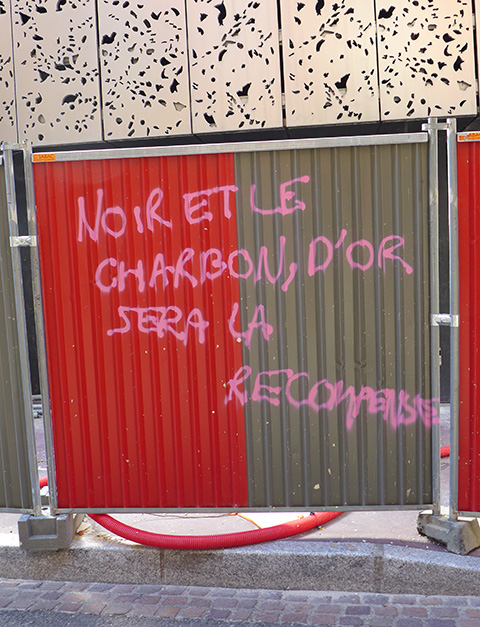 NOIR ET LE
CHARBON, D'OR
SERA LA
RECOMPENSE